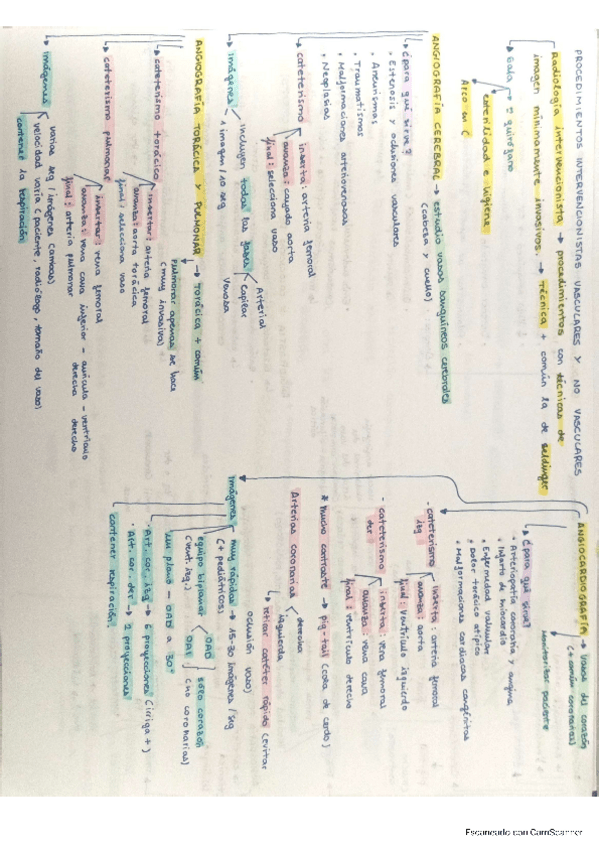 PROCEDIMIENTOS INTERVENCIONISTAS VASCULARES Y NO VASCULARES
Radiología intervencionista → procedimientos con técnicas de
imagen mínimamente invasivos. → Técnica + común la de Seldinger
Sala → quirófano
esterilidad e higiene
Arco en C
ANGIOGRAFÍA CEREBRAL → estudio vasos sanguíneos cerebrales
(cabeza y cuello)
¿para qué sirve?
· Estenosis y oclusiones vasculares
· Aneurismas
· Traumatismos
· Malformaciones arteriovenosas
· Neoplasias
cateterismo
inserta: arteria femoral
avanza: cayado aorta
final: selecciona vaso
imágenes
incluyen todas las fases
Arterial
Capilar
Venosa
ANGIOGRAFÍA TORÁCICA Y PULMONAR → Torácica + común
Pulmonar apenas se hace
(muy invasiva)
cateterismo torácico
insertar: arteria femoral
avanza: aorta torácica
final: selecciona vaso
cateterismo pulmonar
insertar: vena femoral
avanza: vena cava inferior - aurícula - ventrículo
derecho
final: arteria pulmonar
imágenes
varias
velocidad varía (paciente, radiólogo, tamaño del vaso)
contener la respiración
ANGIOCARDIOGRAFÍA → vasos del corazón
(+ común coronarias)
Monitorizar paciente
¿para qué sirve?
· Arteriopatía coronaria y angina
· Infarto de miocardio
· Enfermedad valvular
· Dolor torácico atípico
· Malformaciones cardiacas congénitas
- cateterismo
izq
inserta: arteria femoral
avanza: aorta
final: ventrículo izquierdo
- cateterismo
der
inserta: vena femoral
avanza: vena cava
final: ventrículo derecho
* mucho contraste → pig-tail (cola de cerdo)
Arterias coronarias
derecha
izquierda
retirar catéter rápido (evitar
oclusión vaso)
imágenes
muy rápidas → 15-30 imágenes / seg
(+ pediátricos)
equipo biplanar
(vent. izq.)
OAD
OAI
sólo corazón
(no coronarias)
un plano - OAD a 30°
· Art. cor. izq → 6 proyecciones (irriga +)
· Art. cor. der → 2 proyecciones
contener respiración
Escaneado con CamScanner